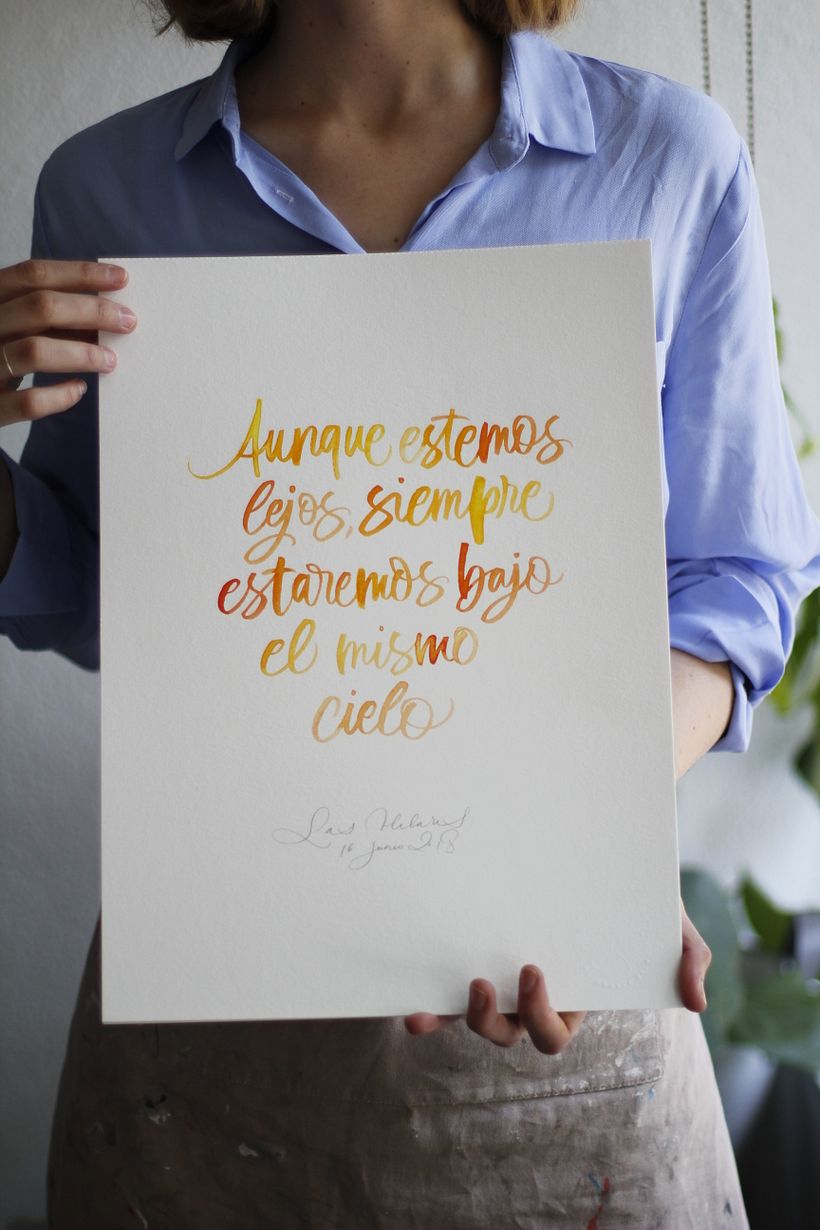 Aunque estemos
lejos, siempre
estaremos bajo
el mismo
cielo
16 junio 2018